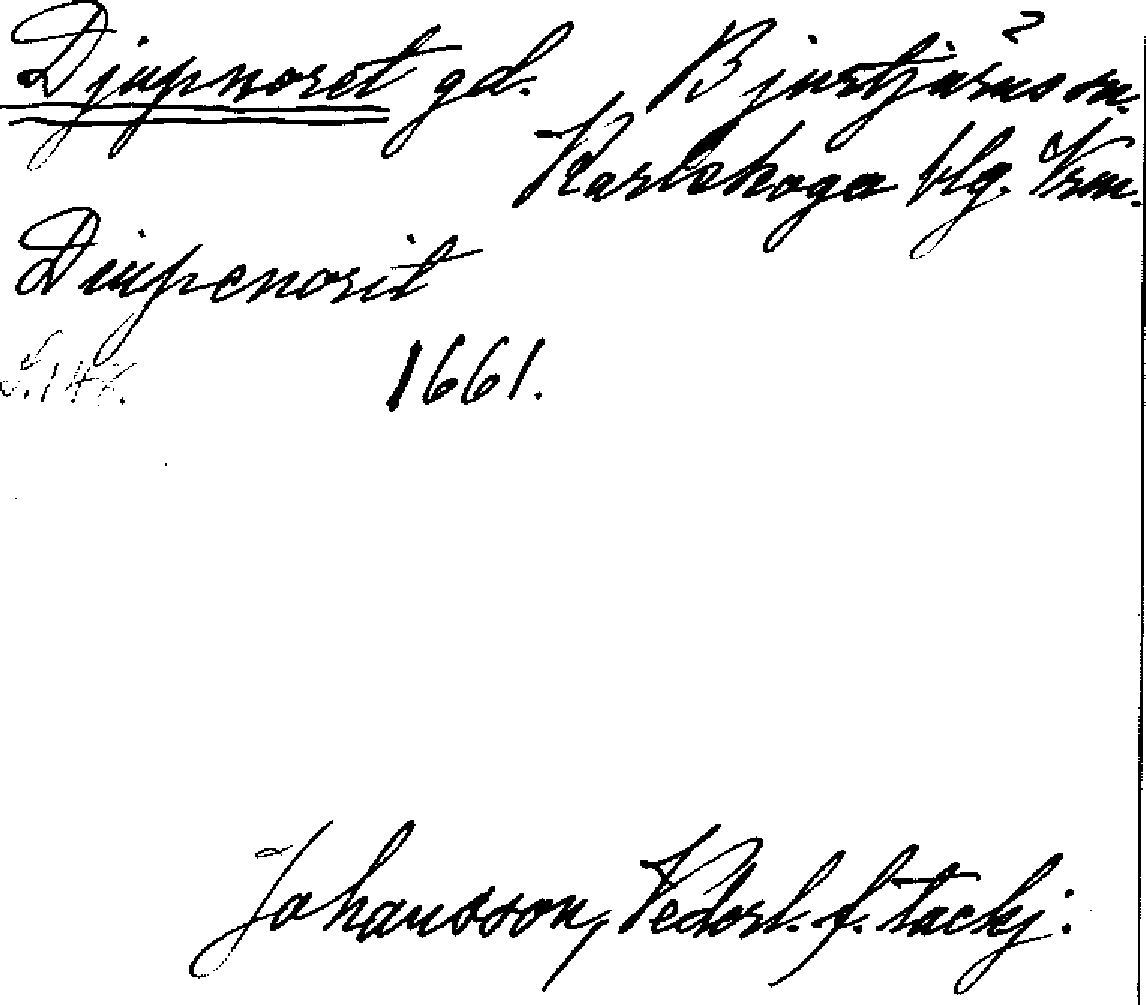 Djupnoret gd. Bjurtjärns sn.
2
Karlskoga blg. Vrm.
Diupenorit
S. 147.
1661.
Johansson, Vedorl. f. tackj.